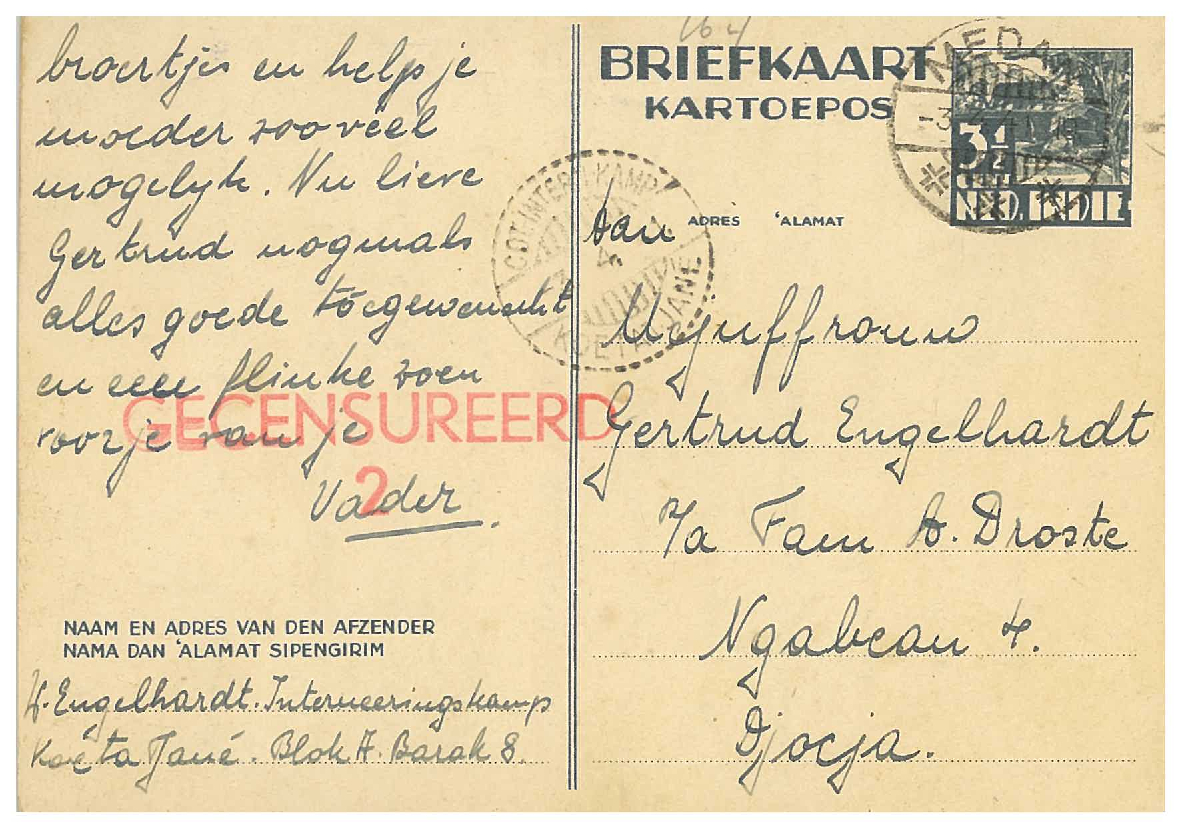 broertjes en help je
moeder zooveel
mogelyk. Nu lieve
Gertrud nogmaals
alles goede toegewenscht
en een flinke zoen
voor je van je
Vader.
GECENSUREERD
2
NAAM EN ADRES VAN DEN AFZENDER
NAMA DAN 'ALAMAT SIPENGIRIM
W. Engelhardt. Interneeringskamp
Koeta Jané. Blok A. Barak 8.
164
BRIEFKAART
KARTOEPOS
MEDAN
3½
CENT
NED. INDIE
INTERN. KAMP
4
KOETATJANE
ADRES 'ALAMAT
Aan
Mejuffrouw
Gertrud Engelhardt
p/a Fam A. Droste
Ngabean 4.
Djocja.